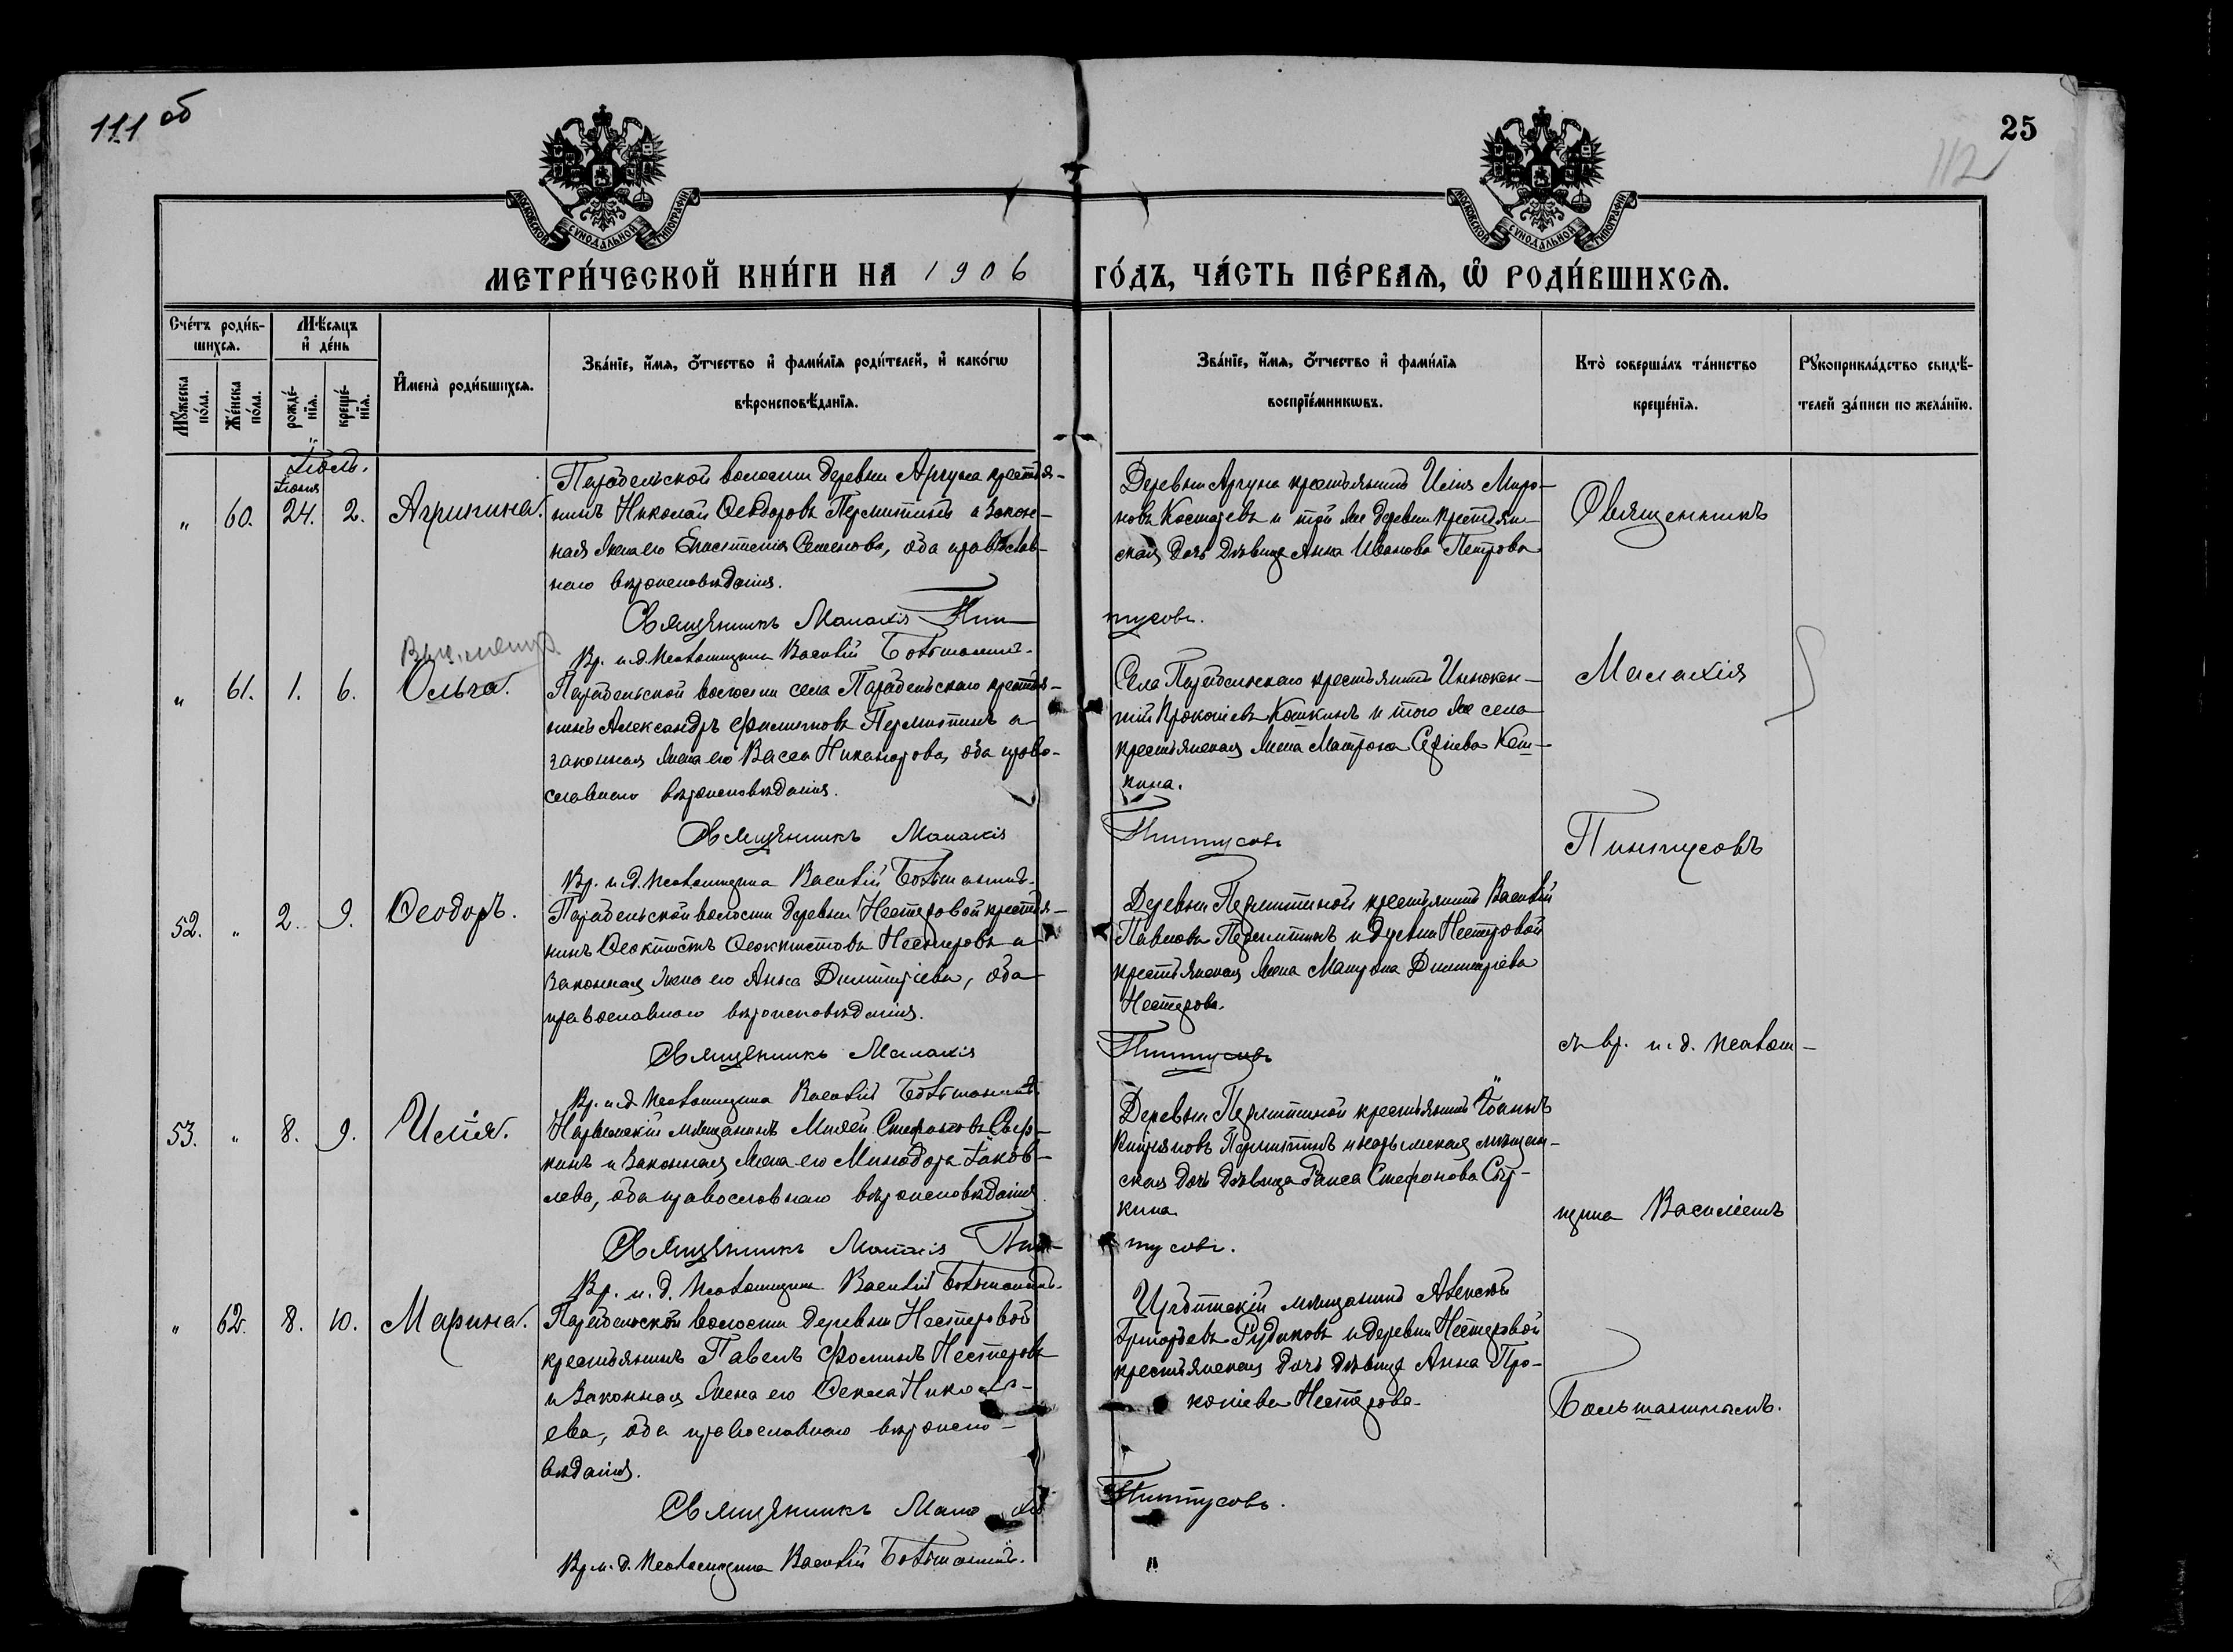 111 об
25
112
МОСКОВСКОЙ СУНОДАЛЬНОЙ ТИПОГРАФІИ
МОСКОВСКОЙ СУНОДАЛЬНОЙ ТИПОГРАФІИ
МЕТРИ́ЧЕСКОЙ КНИ́ГИ НА 1906 ГО́ДЪ, ЧА́СТЬ ПЕ́РВАѦ, Ѡ҆ РОДИ́ВШИХСѦ.
Сче́тъ роди́в-
шихсѧ.
Мꙋ́жеска по́ла.
Же́нска по́ла.
Мѣ́сѧцъ
и҆ де́нь
рожде́-нїѧ.
креще́-нїѧ.
И҆мена̀ роди́вшихсѧ.
Зва́нїе, и҆́мѧ, ѻ҆́тчество и҆ фами́лїѧ роди́телей, и҆ како́гѡ
вѣроисповѣ́данїѧ.
Зва́нїе, и҆́мѧ, ѻ҆́тчество и҆ фами́лїѧ
воспрїе́мникѡвъ.
Кто̀ соверша́лъ та́инство
креще́нїѧ.
Рꙋкоприкла́дство свидѣ́-
телей за́писи по жела́нїю.
Іюль.
Іюня
" 60. 24. 2. Агрипина.
Парабельской волости деревни Аргуна крестья-
нинъ Николай Ѳеодоровъ Пермитинъ и закон-
ная жена его Епистимія Семенова, оба православ-
наго вѣроисповѣданія.
Деревни Аргуна крестьянинъ Илія Миро-
новъ Костаревъ и той же деревни крестьян-
ская дочь дѣвица Анна Иванова Петрова
Священникъ Малахія Пин-
тусовъ.
Вр. и.д. псаломщика Василій Большанинъ.
" 61. 1. 6. Ольга.
Парабельской волости села Парабельскаго крестья-
нинъ Александръ Филиповъ Пермитинъ и
законная жена его Васса Никанорова, оба право-
славнаго вѣроисповѣданія.
Села Парабельскаго крестьянинъ Иннокен-
тій Прокопіевъ Кошкинъ и того же села
крестьянская жена Матрона Сергіева Кош-
кина.
Священникъ Малахія
Пинтусовъ
Вр. и.д. псаломщика Василій Большанинъ.
52. " 2. 9. Ѳеодоръ.
Парабельской волости деревни Нестеровой крестья-
нинъ Ѳеоктистъ Ѳеоктистовъ Нестеровъ и
законная жена его Анна Димитріева, оба
православнаго вѣроисповѣданія.
Деревни Пермитиной крестьянинъ Василій
Павловъ Пермитинъ и деревни Нестеровой
крестьянская жена Матрона Димитріева
Нестерова.
Священникъ Малахія
Пинтусовъ
Вр. и.д. псаломщика Василій Большанинъ.
53. " 8. 9. Илія.
Нарымскій мѣщанинъ Стефановъ Сыр-
кинъ и законная жена его Минодора Іаков-
лева, оба православнаго вѣроисповѣданія
Деревни Пермитиной крестьянинъ Іоаннъ
Кипріяновъ Пермитинъ и нарымская мѣщан-
ская дочь дѣвица Раиса Стефанова Сыр-
кина.
Священникъ Малахія Пин-
тусовъ.
Вр. и. д. псаломщика Василій Большанинъ.
" 62. 8. 10. Марина.
Парабельской волости деревни Нестеровой
крестьянинъ Павелъ Фоминъ Нестеровъ
и законная жена его Ѳекла Никола-
ева, оба православнаго вѣроиспо-
вѣданія.
мѣщанинъ Алексѣй
Григорьевъ Рудаковъ и деревни Нестеровой
крестьянская дочь дѣвица Анна Про-
копіева Нестерова.
Священникъ Мала хія
Пинтусовъ.
Вр. и. д. псаломщика Василій Большанинъ.
Священникъ
Малахія
Пинтусовъ
съ вр. и. д. псалом-
щика Василіемъ
Большанинымъ.